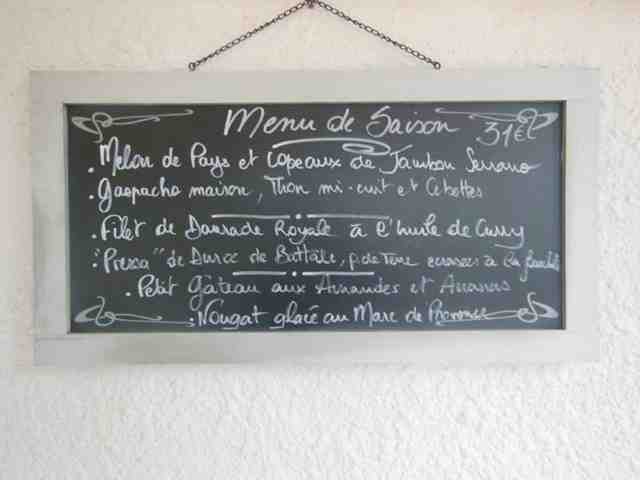 Menu de Saison 31€
. Melon de Pays et Copeaux de Jambon Serrano
. Gaspacho maison, Thon mi-cuit et Cebettes
. Filet de Daurade Royale à l'huile de Curry
. "Pressa" de Duroc de Battalé, p. de Terre écrasées à la
. Petit Gâteau aux Amandes et Ananas
. Nougat glacé au Marc de Provence